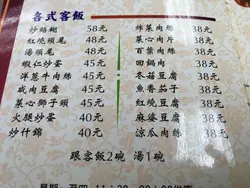 各式客飯
炒蝦糊 58元
紅燒頭尾 48元
湯頭尾 48元
蝦仁炒蛋 45元
洋蔥牛肉絲 45元
咸肉豆腐 45元
菜心獅子頭 45元
火腿炒蛋 40元
炒什錦 40元
炸菜肉絲 38元
菜心肉片 38元
百葉肉絲 38元
回鍋肉 38元
冬菇豆腐 38元
魚香茄子 38元
紅燒豆腐 38元
麻婆豆腐 38元
涼瓜肉絲 38元
跟客飯2碗 湯1碗